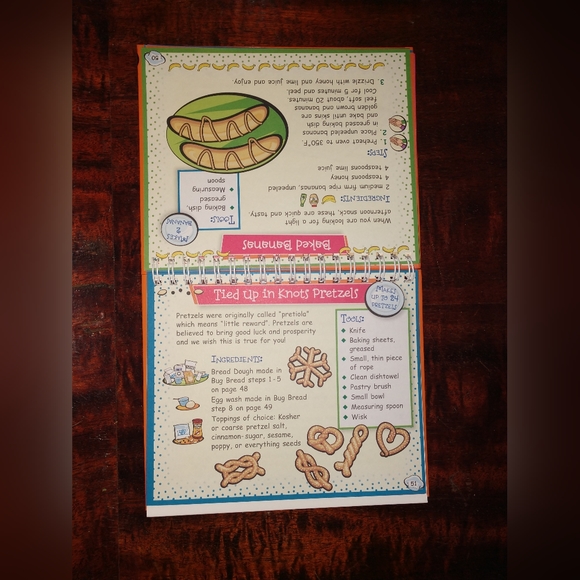 50
Baked Bananas
MAKES
2
BANANAS
When you are looking for a light
afternoon snack, these are quick and tasty.
INGREDIENTS:
2 medium firm ripe bananas, unpeeled
4 teaspoons honey
4 teaspoons lime juice
TOOLS:
Baking dish,
greased
Measuring
spoon
STEPS:
1. Preheat oven to 350°F.
2. Place unpeeled bananas
in greased baking dish
and bake until skins are
golden brown and bananas
feel soft, about 20 minutes.
Cool for 5 minutes and peel.
3. Drizzle with honey and lime juice and enjoy.
Tied Up in Knots Pretzels
MAKES
UP TO 24
PRETZELS
Pretzels were originally called "pretiola"
which means "little reward". Pretzels are
believed to bring good luck and prosperity
and we wish this is true for you!
INGREDIENTS:
Bread Dough made in
Bug Bread steps 1-5
on page 48
Egg wash made in Bug Bread
step 8 on page 49
Toppings of choice: Kosher
or coarse pretzel salt,
cinnamon-sugar, sesame,
poppy, or everything seeds
TOOLS:
Knife
Baking sheets,
greased
Small, thin piece
of rope
Clean dishtowel
Pastry brush
Small bowl
Measuring spoon
Wisk
51